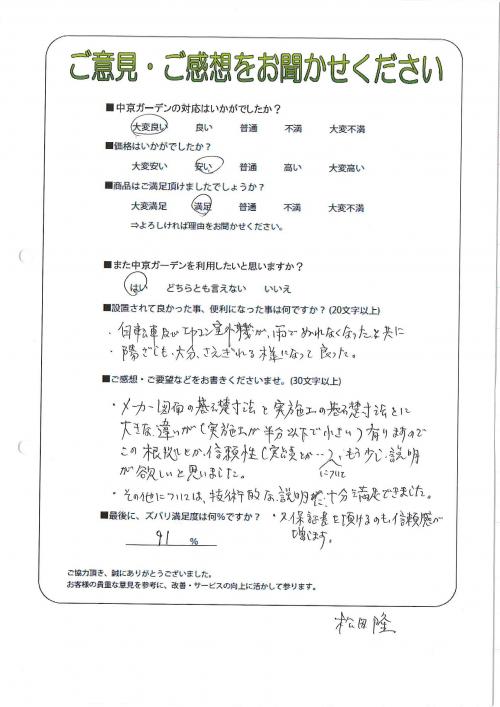 ご意見・ご感想をお聞かせください
■中京ガーデンの対応はいかがでしたか？
大変良い 良い 普通 不満 大変不満
■価格はいかがでしたか？
大変安い 安い 普通 高い 大変高い
■商品はご満足頂けましたでしょうか？
大変満足 満足 普通 不満 大変不満
⇒よろしければ理由をお聞かせください。
■また中京ガーデンを利用したいと思いますか？
はい どちらとも言えない いいえ
■設置されて良かった事、便利になった事は何ですか？(20文字以上)
・自転車及びエアコン室外機が、雨でぬれなくなったと共に
・陽ざしも、大分、さえぎれる様になって良った。
■ご感想・ご要望などをお書きくださいませ。(30文字以上)
・メーカー図面の基礎寸法と実施工の基礎寸法とに
大きな違いが(実施工が半分以下で小さい)有りますので
この根拠とか信頼性(実績とか…)について、もう少し説明
が欲しいと思いました。
・その他については、技術的な説明に十分満足できました。
■最後に、ズバリ満足度は何％ですか？
・又保証書を頂けるのも、信頼感が
増します。
91 %
ご協力頂き、誠にありがとうございました。
お客様の貴重な意見を参考に、改善・サービスの向上に活かして参ります。
松田隆